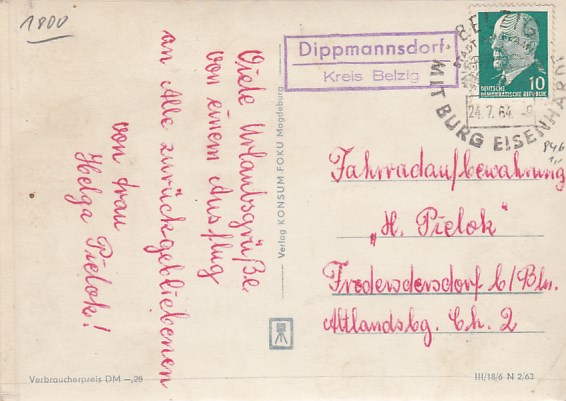 1800
Viele Urlaubsgrüße
von einem Ausflug
an Alle zurückgebliebenen
von Frau
Helga Pielok!
Verlag KONSUM FOKU Magdeburg
Verbraucherpreis DM -,20
Dippmannsdorf
Kreis Belzig
10
DEUTSCHE
DEMOKRATISCHE REPUBLIK
BELZIG
24.7.64
MIT BURG EISENHARDT
Fahrradaufbewahrung
„H. Pielok"
Fredersdersdorf b/Bln.
Altlandsbg. Ch. 2
III/18/6 N 2/63